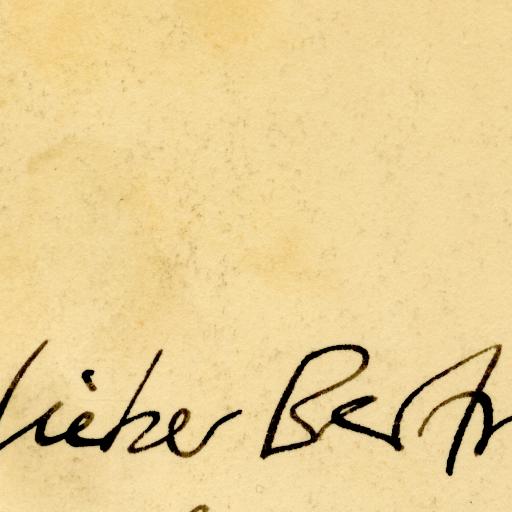 lieber Bert